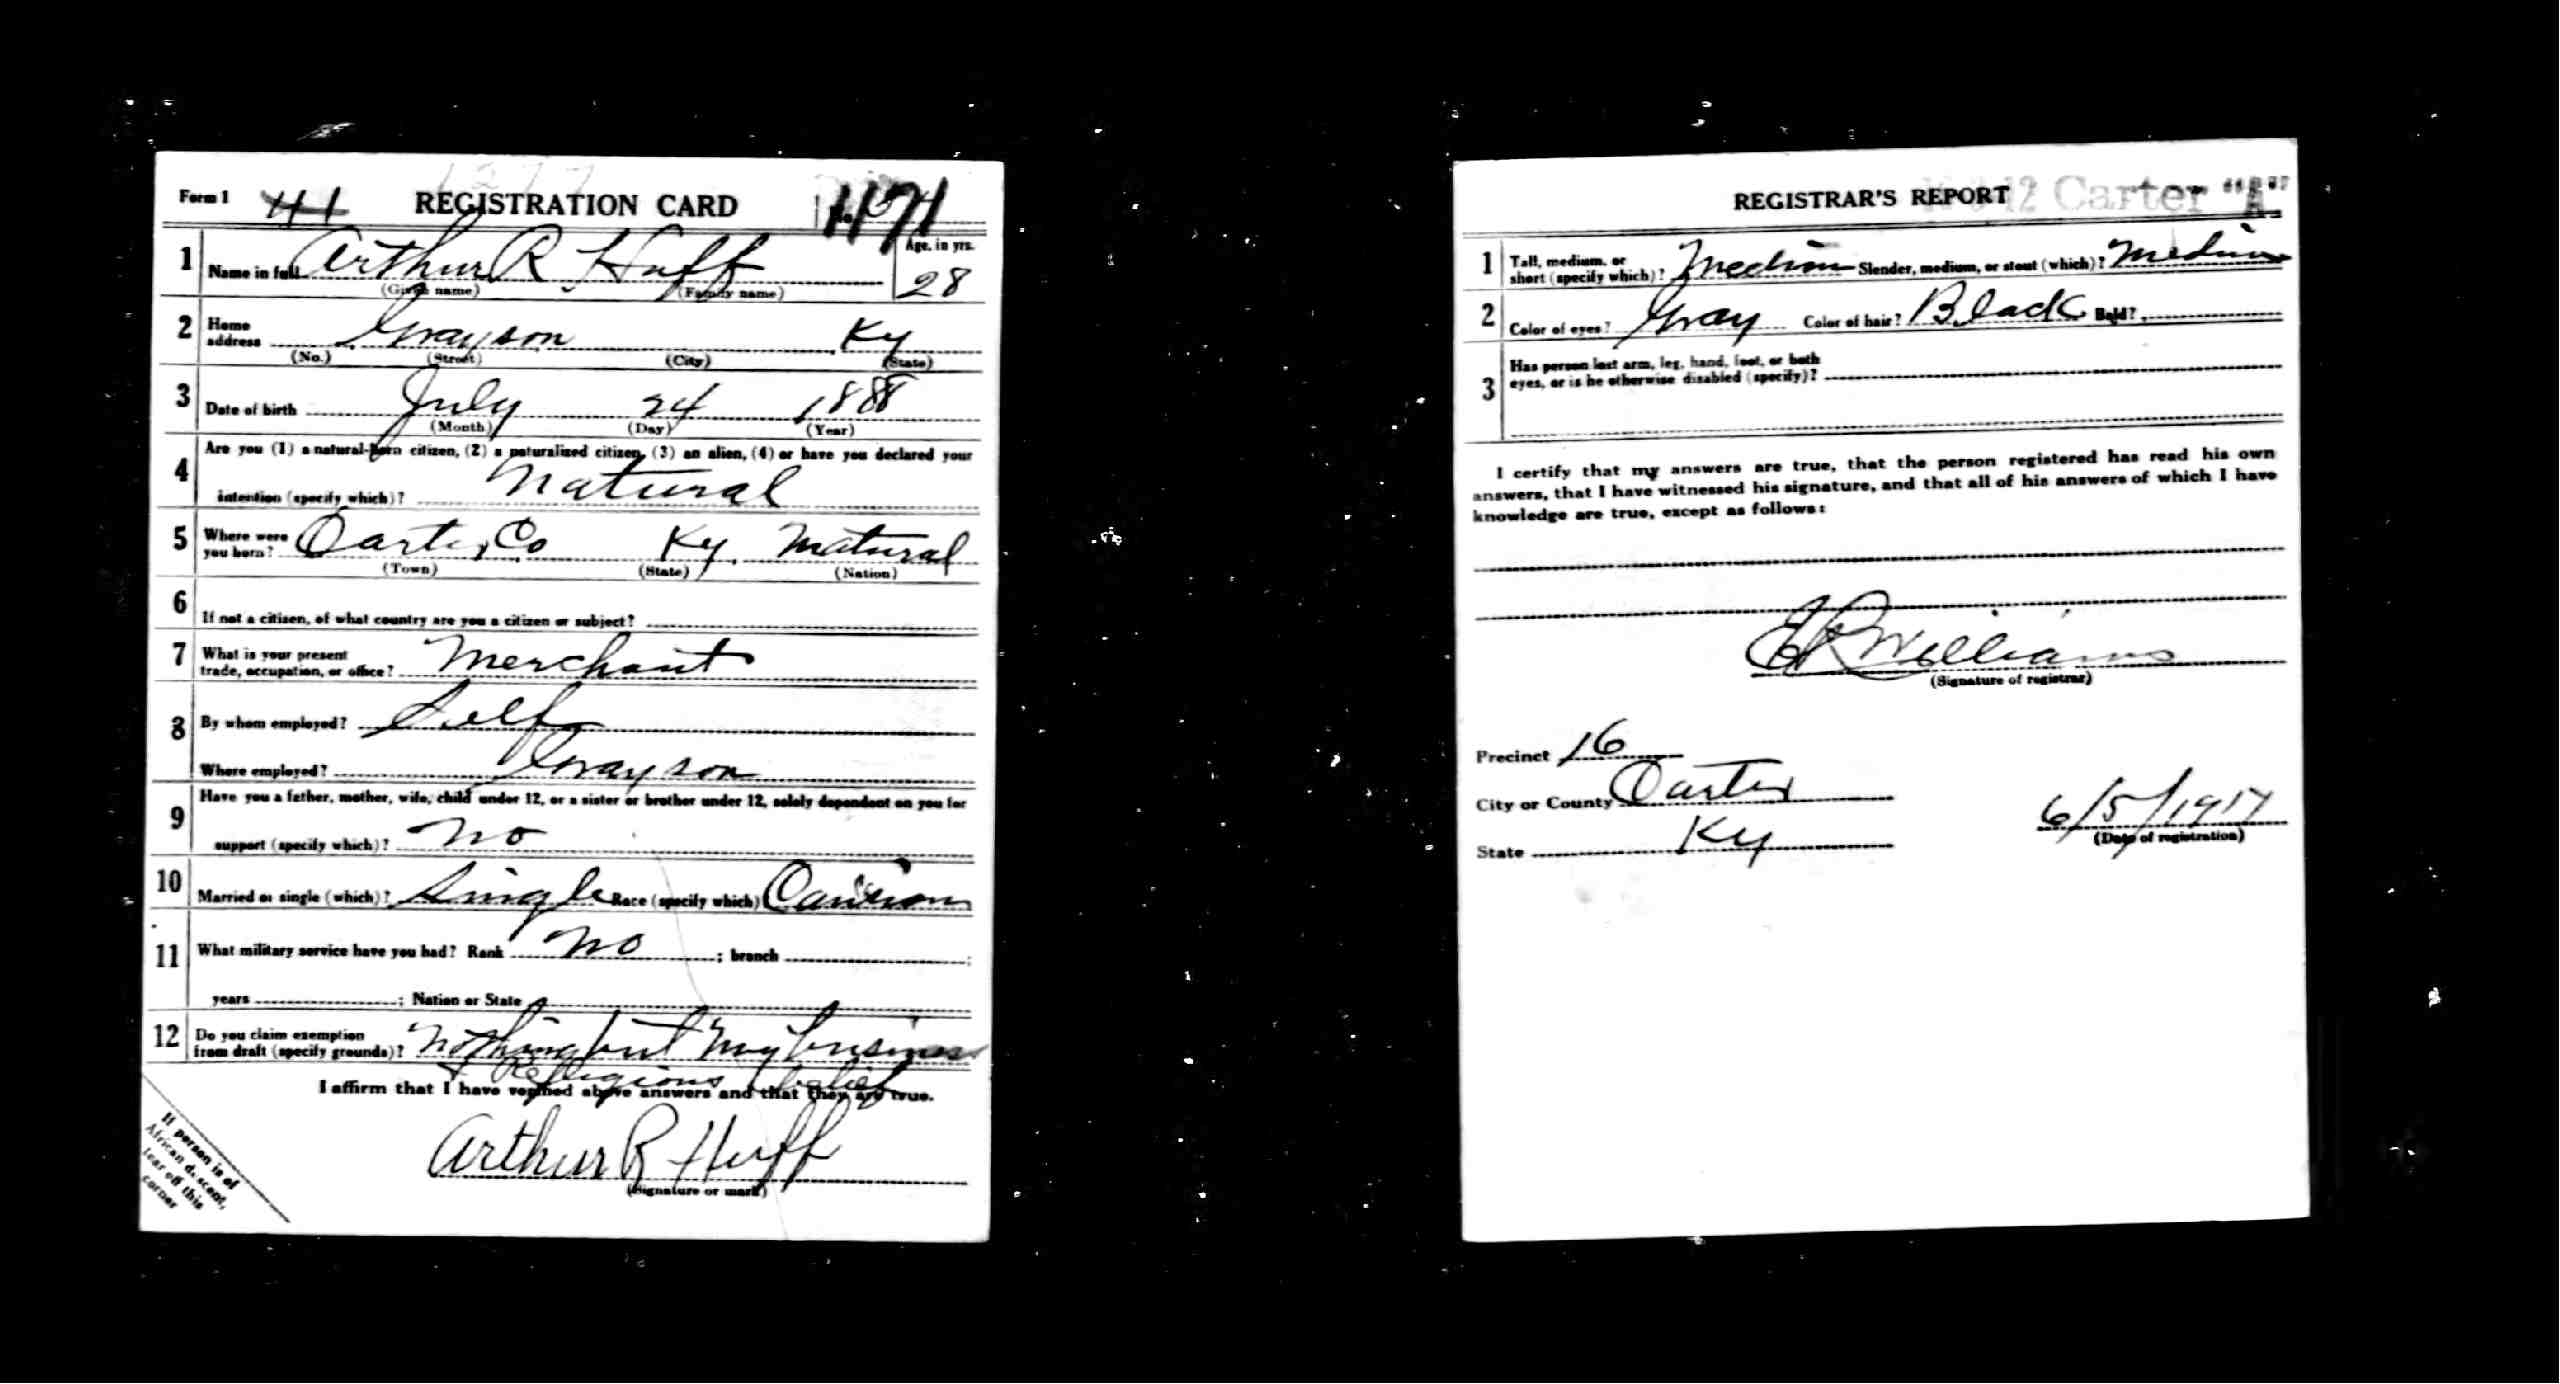 Form 1 41 REGISTRATION CARD No. 1171
1 Name in full Arthur R Huff Age, in yrs.
(Given name) (Family name) 28
2 Home address Grayson Ky
(No.) (Street) (City) (State)
3 Date of birth July 24 1888
(Month) (Day) (Year)
4 Are you (1) a natural-born citizen, (2) a naturalized citizen, (3) an alien, (4) or have you declared your
intention (specify which)? Natural
5 Where were you born? Carter Co Ky Natural
(Town) (State) (Nation)
6 If not a citizen, of what country are you a citizen or subject?
7 What is your present trade, occupation, or office? Merchant
8 By whom employed? Self
Where employed? Grayson
9 Have you a father, mother, wife, child under 12, or a sister or brother under 12, solely dependent on you for
support (specify which)? No
10 Married or single (which)? Single Race (specify which)
11 What military service have you had? Rank No ; branch ;
years ; Nation or State
12 Do you claim exemption from draft (specify grounds)? Nothing but my business
& Religious belief
I affirm that I have verified above answers and that they are true.
Arthur R Huff
(Signature or mark)
If person is of
African descent,
tear off this
corner
REGISTRAR'S REPORT 12 Carter "A"
1 Tall, medium, or short (specify which)? Medium Slender, medium, or stout (which)? Medium
2 Color of eyes? Gray Color of hair? Black Bald?
3 Has person lost arm, leg, hand, foot, or both
eyes, or is he otherwise disabled (specify)?
I certify that my answers are true, that the person registered has read his own
answers, that I have witnessed his signature, and that all of his answers of which I have
knowledge are true, except as follows:
E R Williams
(Signature of registrar)
Precinct 16
City or County Carter
State Ky
6/5/1917
(Date of registration)